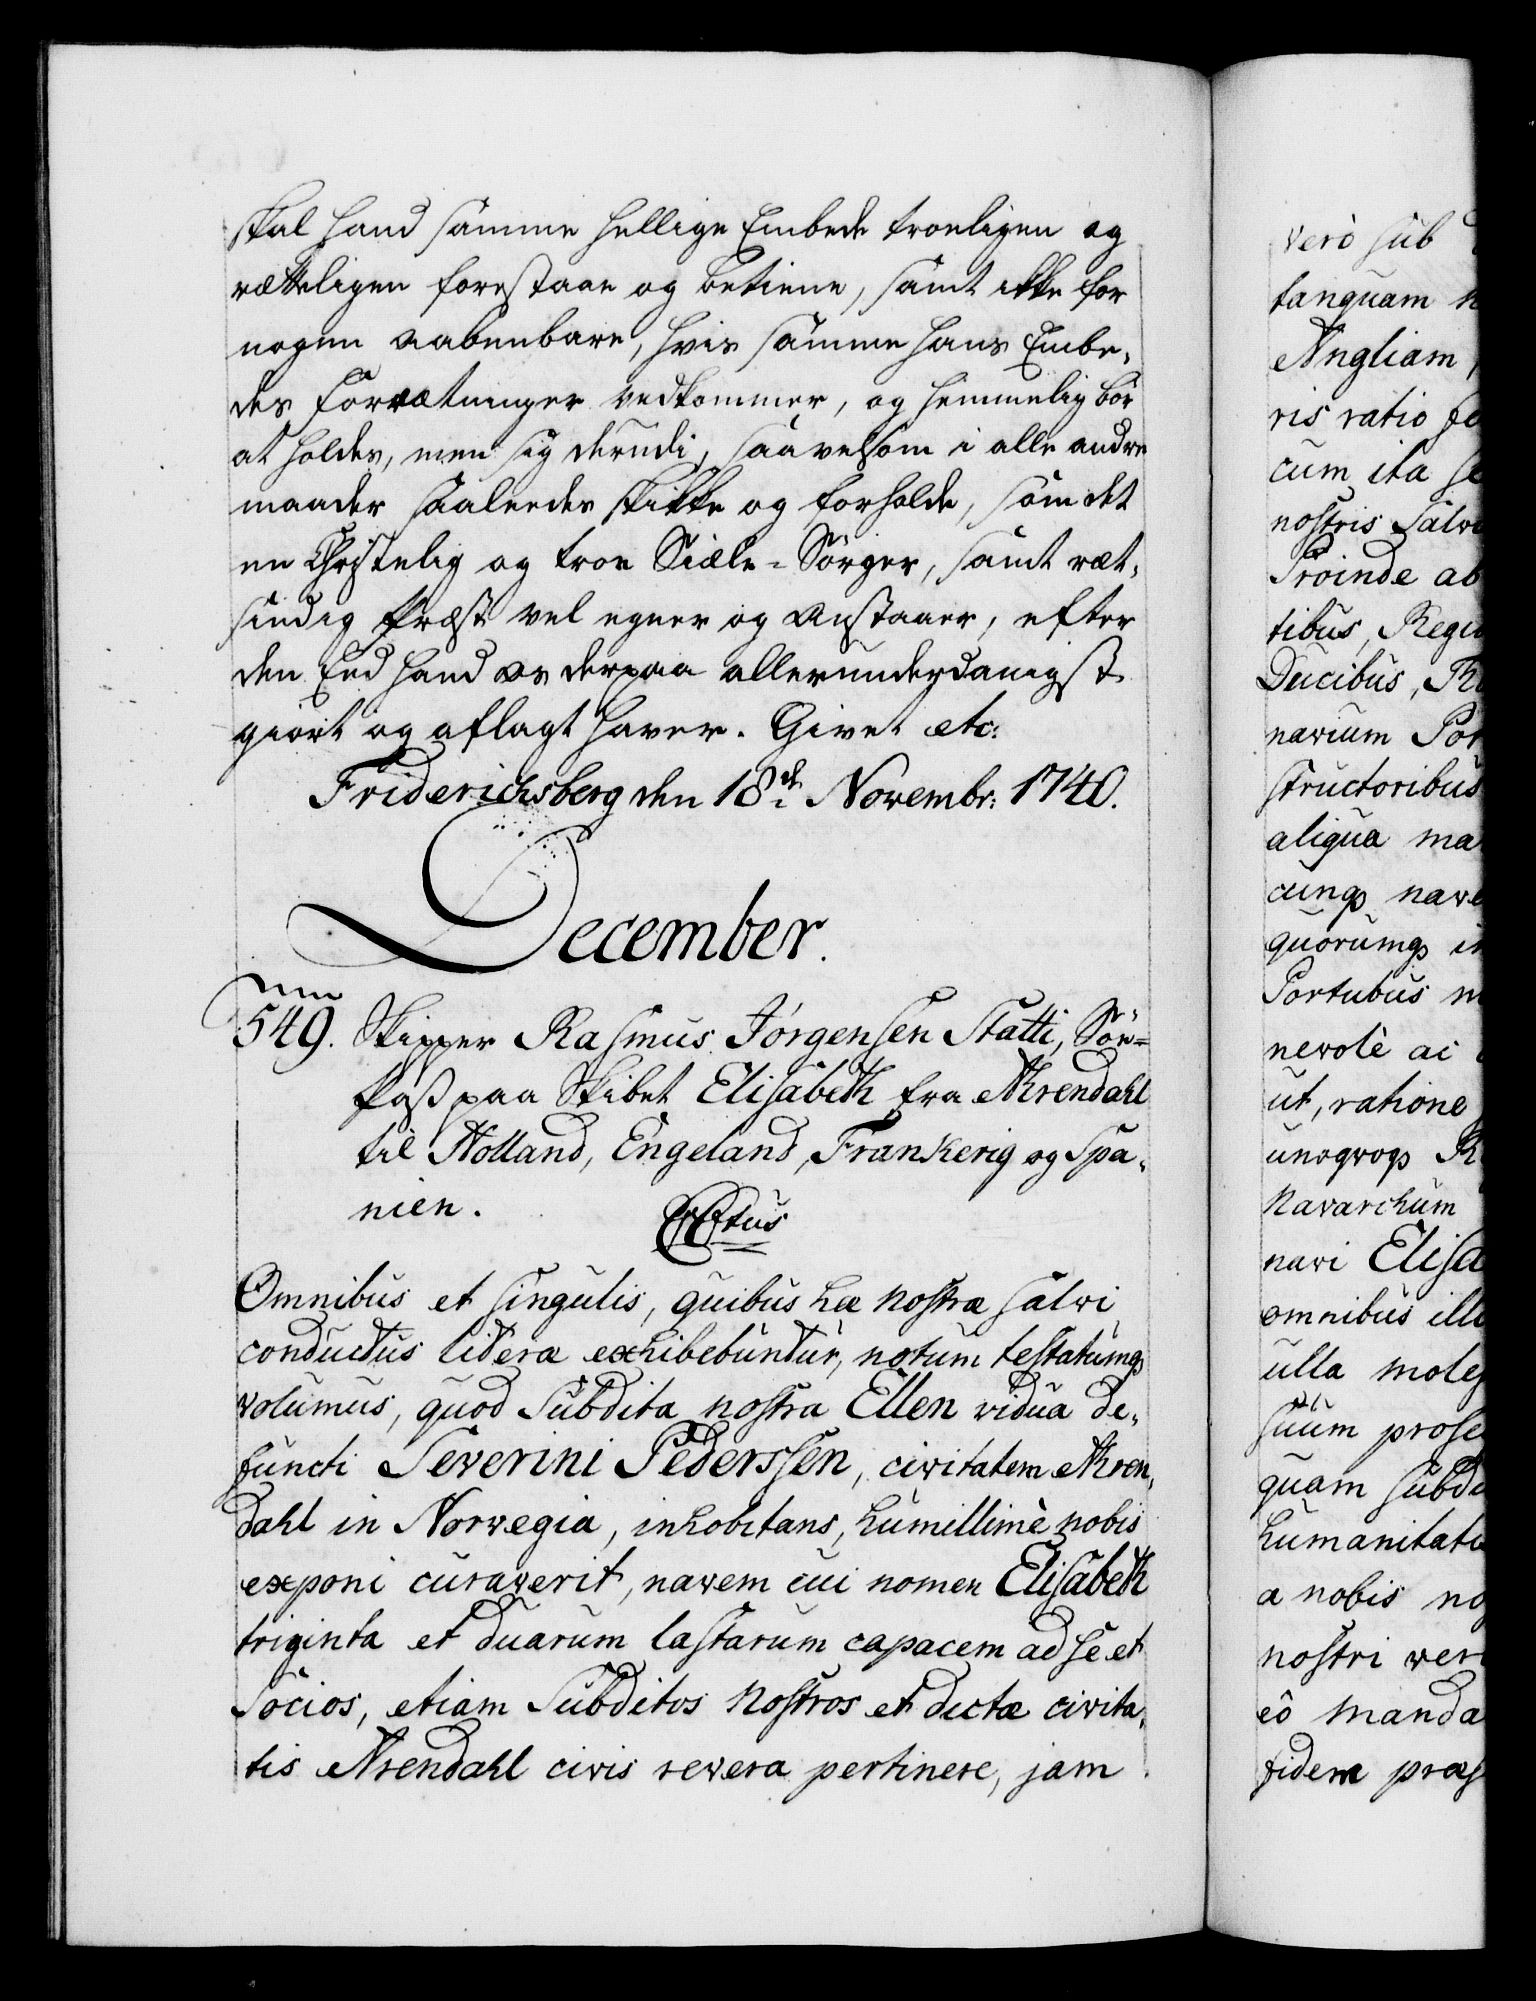 skal hand samme hellige Embede troeligen og
rætteligen forestaae og betiene, samt ikke for
nogen aabenbare, hvis samme hans Embe,
des Forrætninger vedkommer, og hemmelig bör
at holdes, men sig derudi, saavelsom i alle andre
maader saaledes skikke og forholde, som det
en Christelig og troe Siæle-Sörger, samt ræt,
sindig Præst vel egner og anstaaer, efter
den Eed hand os derpaa allerunderdanigst
giort og aflagt haver. Givet etc:
Friderichsberg den 18de Novembr: 1740.
December.
549. Skipper Rasmus Jörgensen Statti, Söe=
Pass paa Skibet Elisabeth fra Ahrendahl
til Holland, Engeland, Frankerig og Spa,
nien.
CCtus
Omnibus et singulis, quibus hæ nostræ salvi
conductus literæ exhibebuntur, notum testatumq;
volumus, quod Subdita nostra Ellen vidua de,
functi Severini Pederssen, civitatem Ahren,
dahl in Norvegia, inhobitans, humillimè nobis
exponi curaverit, navem cui nomen Elisabeth
triginta et duarum lastarum capacem ad se et
Socios, etiam Subditos Nostros et dictæ civita,
tis Arendahl civis revera pertinere, jam
verò sub
tanquam
Angliam,
ris ratio
cum ita
nostris Salv
Proinde ab
tibus, Regi
Ducibus,
narium Por
structoribus
aliqua ma
cunq; nave
quorumq; in
Portubus
nevolè ac
ut, ratione
unoqvoq;
Navarchum
navi Elisa
omnibus ill
ulla moles
suum prose
quam Subdi
humanitati
a nobis
nostri
eô manda
fidem præs